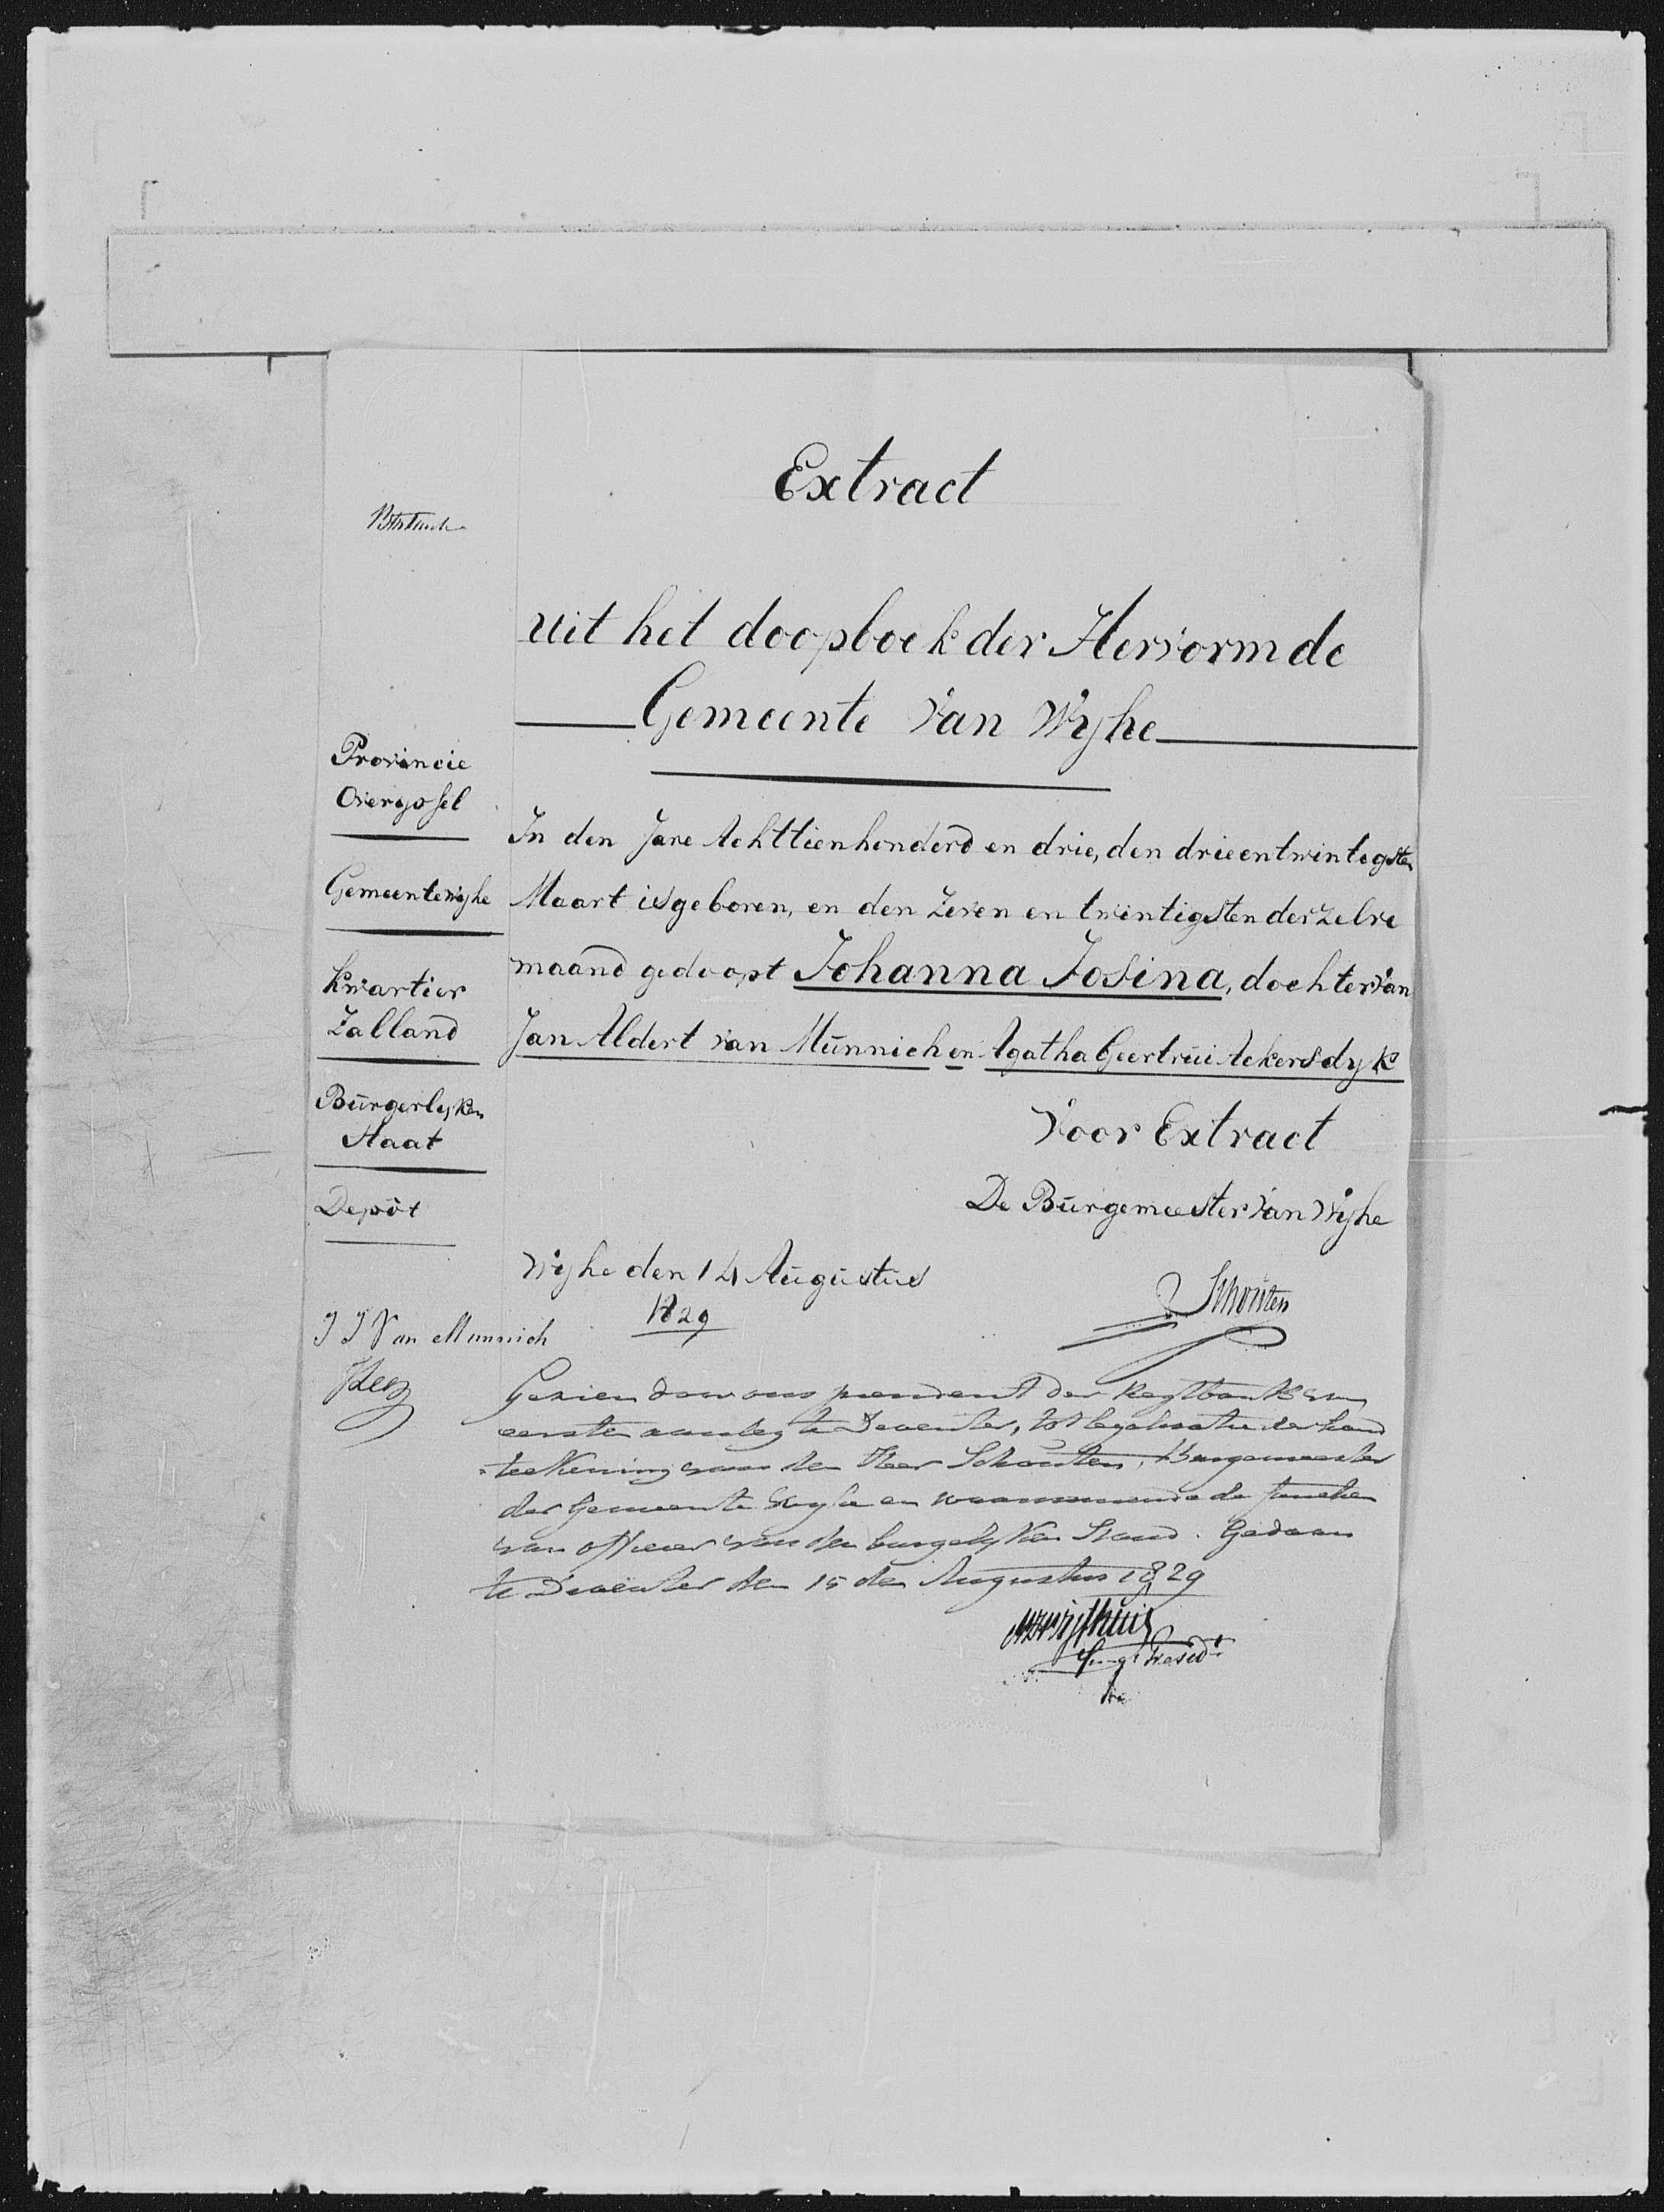 Extract
uit het doopboek der Hervormde
Gemeente van Wijhe
Provincie
Overyssel
Gemeente Wijhe
Kwartier
Zalland
Burgerlyken
Staat
Depôt
J J Van Munnich
In den Jare Achttienhonderd en drie, den drieentwintegsten
Maart is geboren, en den Zeven en twintigsten derzelve
maand gedoopt Johanna Josina, dochter van
Jan Aldert van Munnich en Agatha Geertrui Ackersdyk
Voor Extract
De Burgemeester van Wijhe
Wijhe den 14 Augustus
1829
Schouten
Gezien door ons president der Regtbank van
eersten aanleg te Deventer, tot legalisatie der hand
teekening van den Heer Schouten, Burgemeester
der Gemeente Wyhe en waarnemende de functien
van officier van den burgelyken Stand. Gedaan
te Deventer den 15 den Augustus 1829